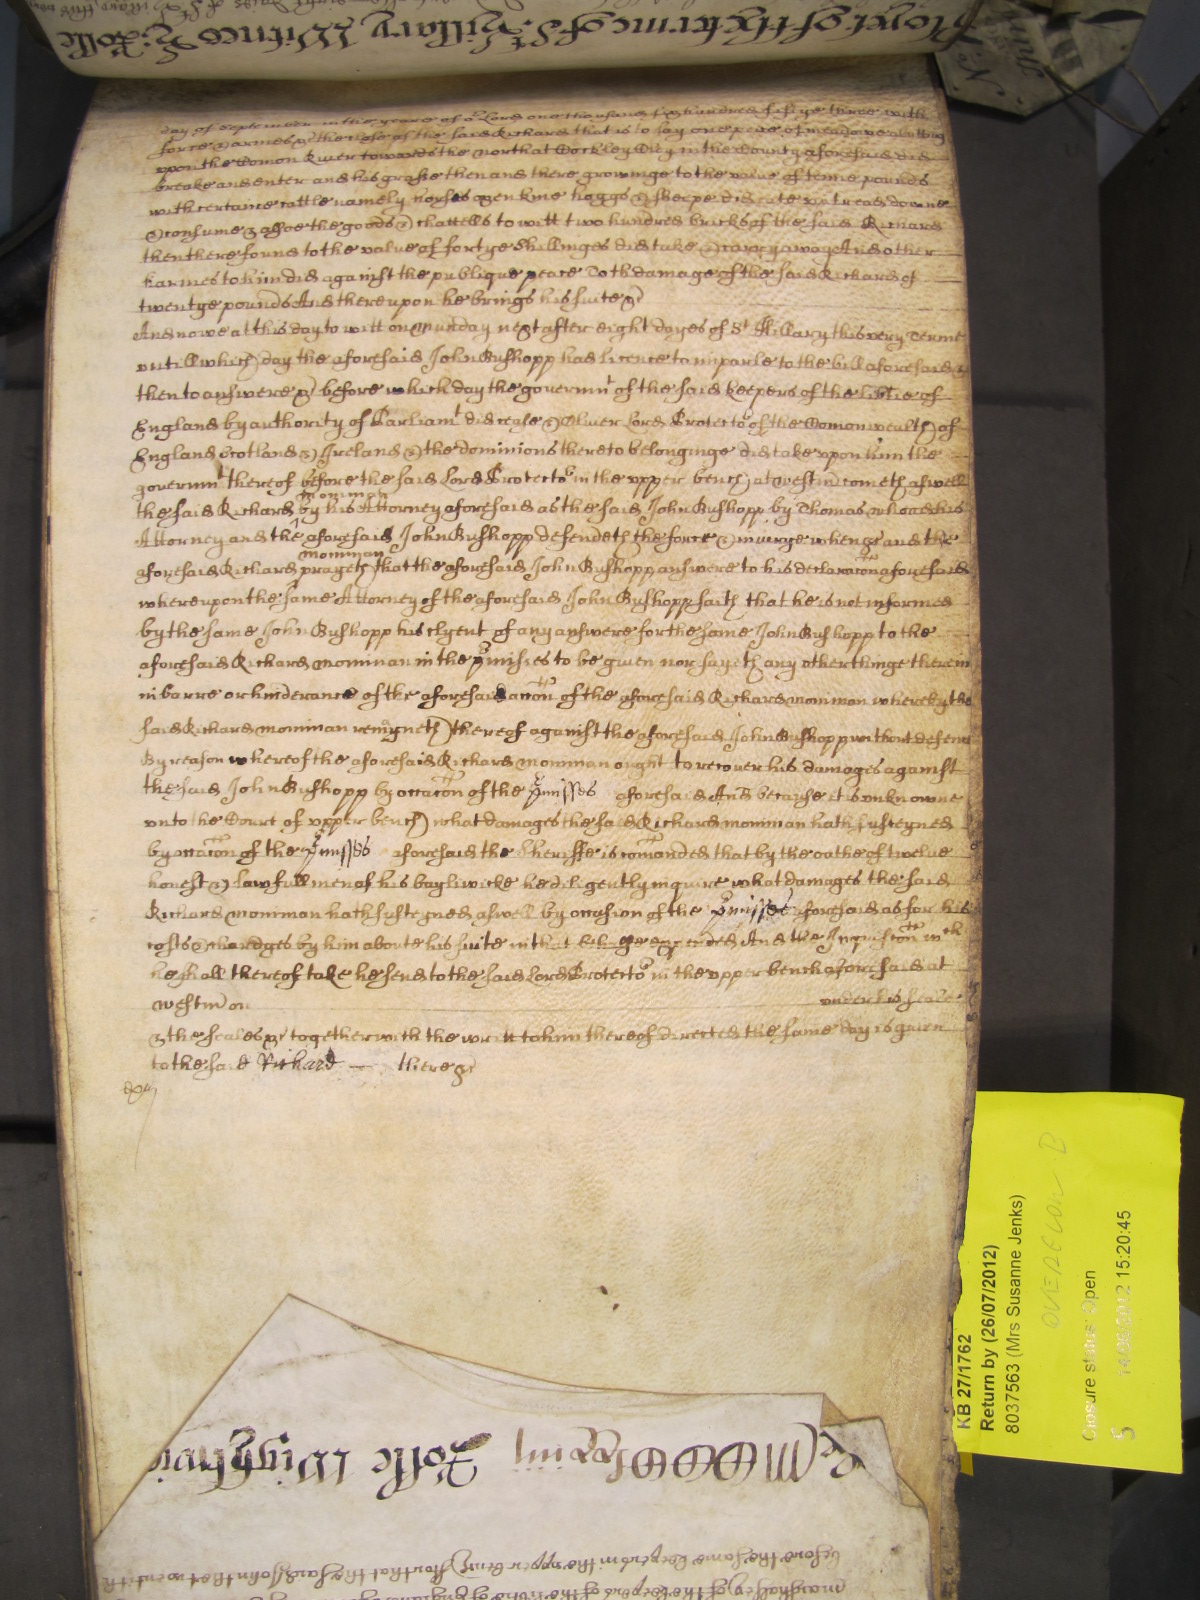 day of September in the yeare of or Lord one thousand six hundred fiftye three with
force & armes &c the close of the said Richard that is to say one peece of meadowe abutting
upon the Comon River towards the north at in the County aforesaid did
breake and enter and his grasse then and there growinge to the value of tenne pounds
with certaine cattle namely horses oxen kine hoggs & sheepe did eate up tread downe
& consume & alsoe the goods & chattells to witt two hundred bricks of the said Richard
then there found to the value of fortye shillinges did take & carry away And other
harmes to him did against the publique peace To th damage of the said Richard of
twentye pounds And thereupon he brings his suite &c
And nowe at this day to witt on Munday next after eight dayes of St Hillary this very Terme
untill which day the aforesaid John Bushopp had licence to imparle to the bill aforesaid &
then to answere &c before which day the governmt of the said keepers of the libtie of
England by authority of Parliamt did cease & Oliver Lord Protector of the Comonwealth of
England Scotland & Ireland & the dominions thereto belonginge did take upon him the
governmt thereof before the said Lord Protector in the upper bench at westm cometh aswell
the said Richard momman by his Attorney aforesaid as the said John Bushopp by Thomas his
Attorney and the aforesaid John Bushopp defendeth the force & iniurye when &c and the
aforesaid Richard momman prayeth that the aforesaid John Bushopp answere to his declaracon aforesaid
whereupon the same Attorney of the aforesaid John Bushopp saith that he is not informed
by the same John Bushopp his clyent of any answere for the same John Bushopp to the
aforesaid Richard momman in the pmisses to be given nor sayeth any other thinge therein
in barre or hinderance of the aforesaid accon of the aforesaid Richard momman whereby the
said Richard momman remayneth thereof against the aforesaid John Bushopp without defence
By reason whereof the aforesaid Richard momman ought to recover his damages against
the said John Bushopp by occacon of the pmisses aforesaid And because it is unknowne
unto the Court of upper bench what damages the said Richard momman hath susteyned
by occacon of the pmisses aforesaid the Sheriffe is comanded that by the oathe of twelve
honest & lawfull men of his bayliwicke he diligently inquire what damages the said
Richard momman hath susteyned aswell by occasion of the pmisses aforesaid as for his
costs & chardges by him about his suite in that behalfe expended And the Inquisicon wch
he shall thereof take he send to the said Lord Protector in the upper bench aforesaid at
westm on under his seale
& the seales &c together with the writt to him thereof directed the same day is given
to the said Richard there &c
KB 27/1762
Return by (26/07/2012)
8037563 (Mrs Susanne Jenks)
Closure status: Open
5 14/06/2012 15:20:45
Rolle
before the same keepers in the upper bench